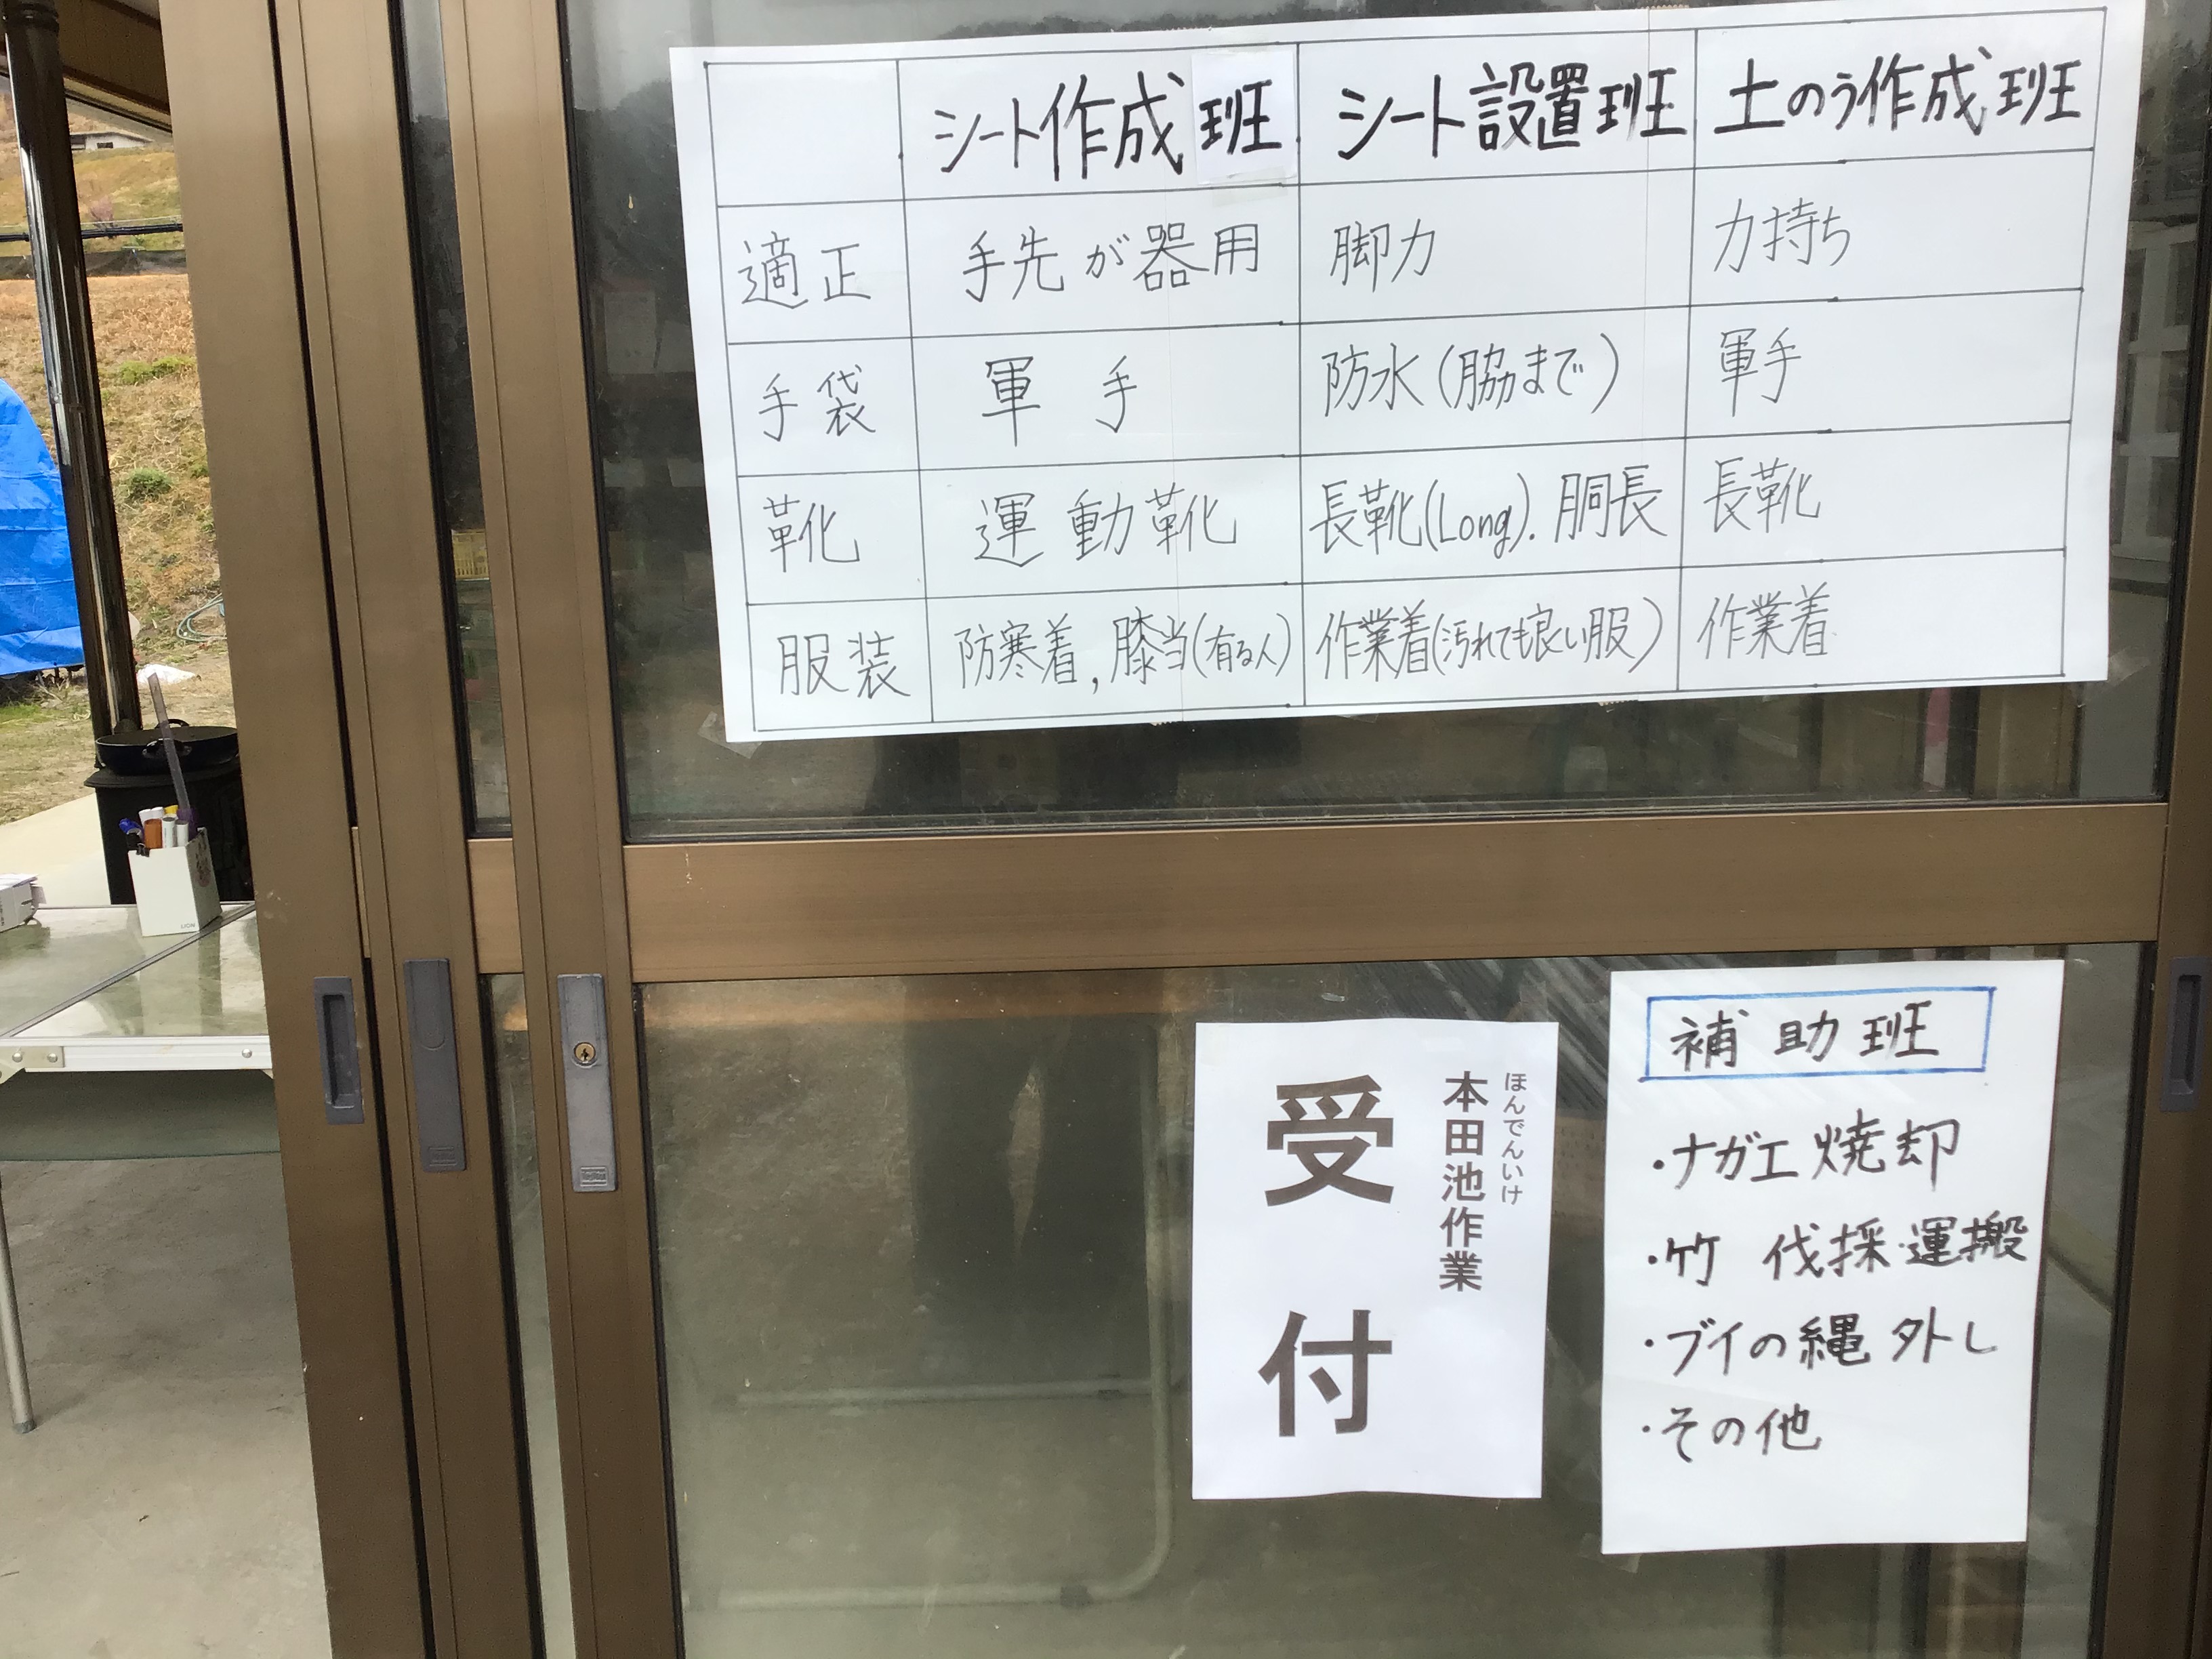 シート作成班 シート設置班 土のう作成班
適正 手先が器用 脚力 力持ち
手袋 軍手 防水(脇まで) 軍手
靴 運動靴 長靴(Long). 胴長 長靴
服装 防寒着, 膝当(有る人) 作業着(汚れても良い服) 作業着
ほんでんいけ
本田池作業
受付
補助班
・ナガエ焼却
・竹 伐採・運搬
・ブイの縄外し
・その他
LION